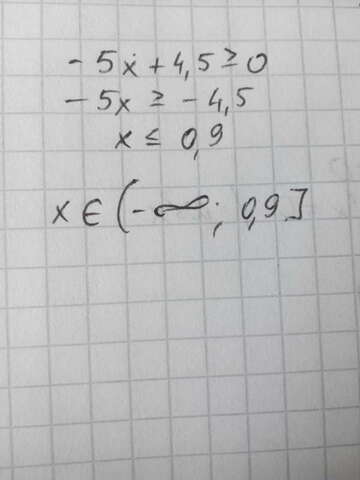 - 5x + 4,5 ≥ 0
- 5x ≥ - 4,5
x ≤ 0,9
x ∈ (-∞; 0,9]